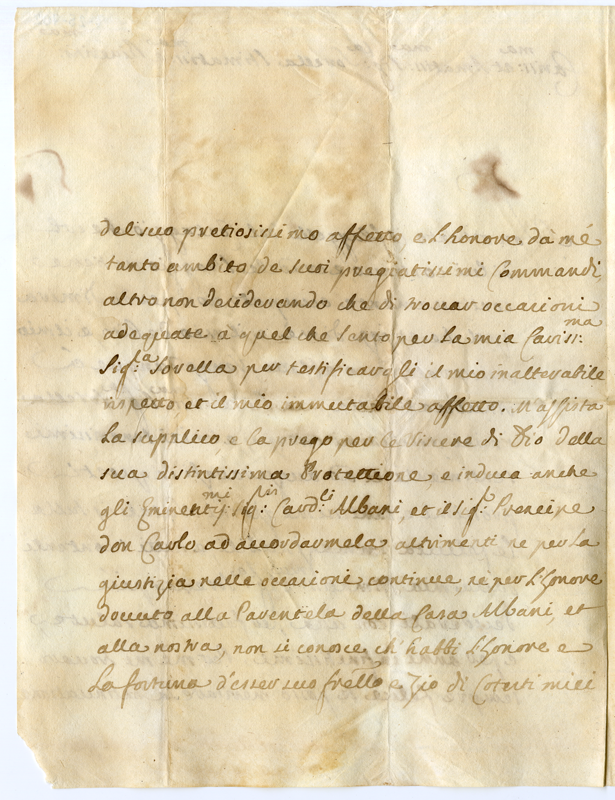 del suo pretiosissimo affetto e l'honore da mé
tanto ambito de suoi pregiatissimi Commandi,
altro non desiderando che di trovar occasioni
adequate a quel che sento per la mia Cariss:ma
Sig:ra Sorella per testificargli il mio inalterabile
rispetto et il mio immutabile affetto. M'assista
la supplico, e la prego per le Viscere di Dio della
sua distintissima Protettione, e induca anche
gli Eminenti:mi Sig:ri Card:li Albani, et il Sig:r Prencipe
don Carlo ad accordarmela altrimenti ne per la
giustizia nelle occasioni continue, ne per l'honore
dovuto alla Parentela della Casa Albani, et
alla nostra, non si conosce ch'habbi l'honore e
la fortuna d'esser suo frello e Zio di Cotesti miei